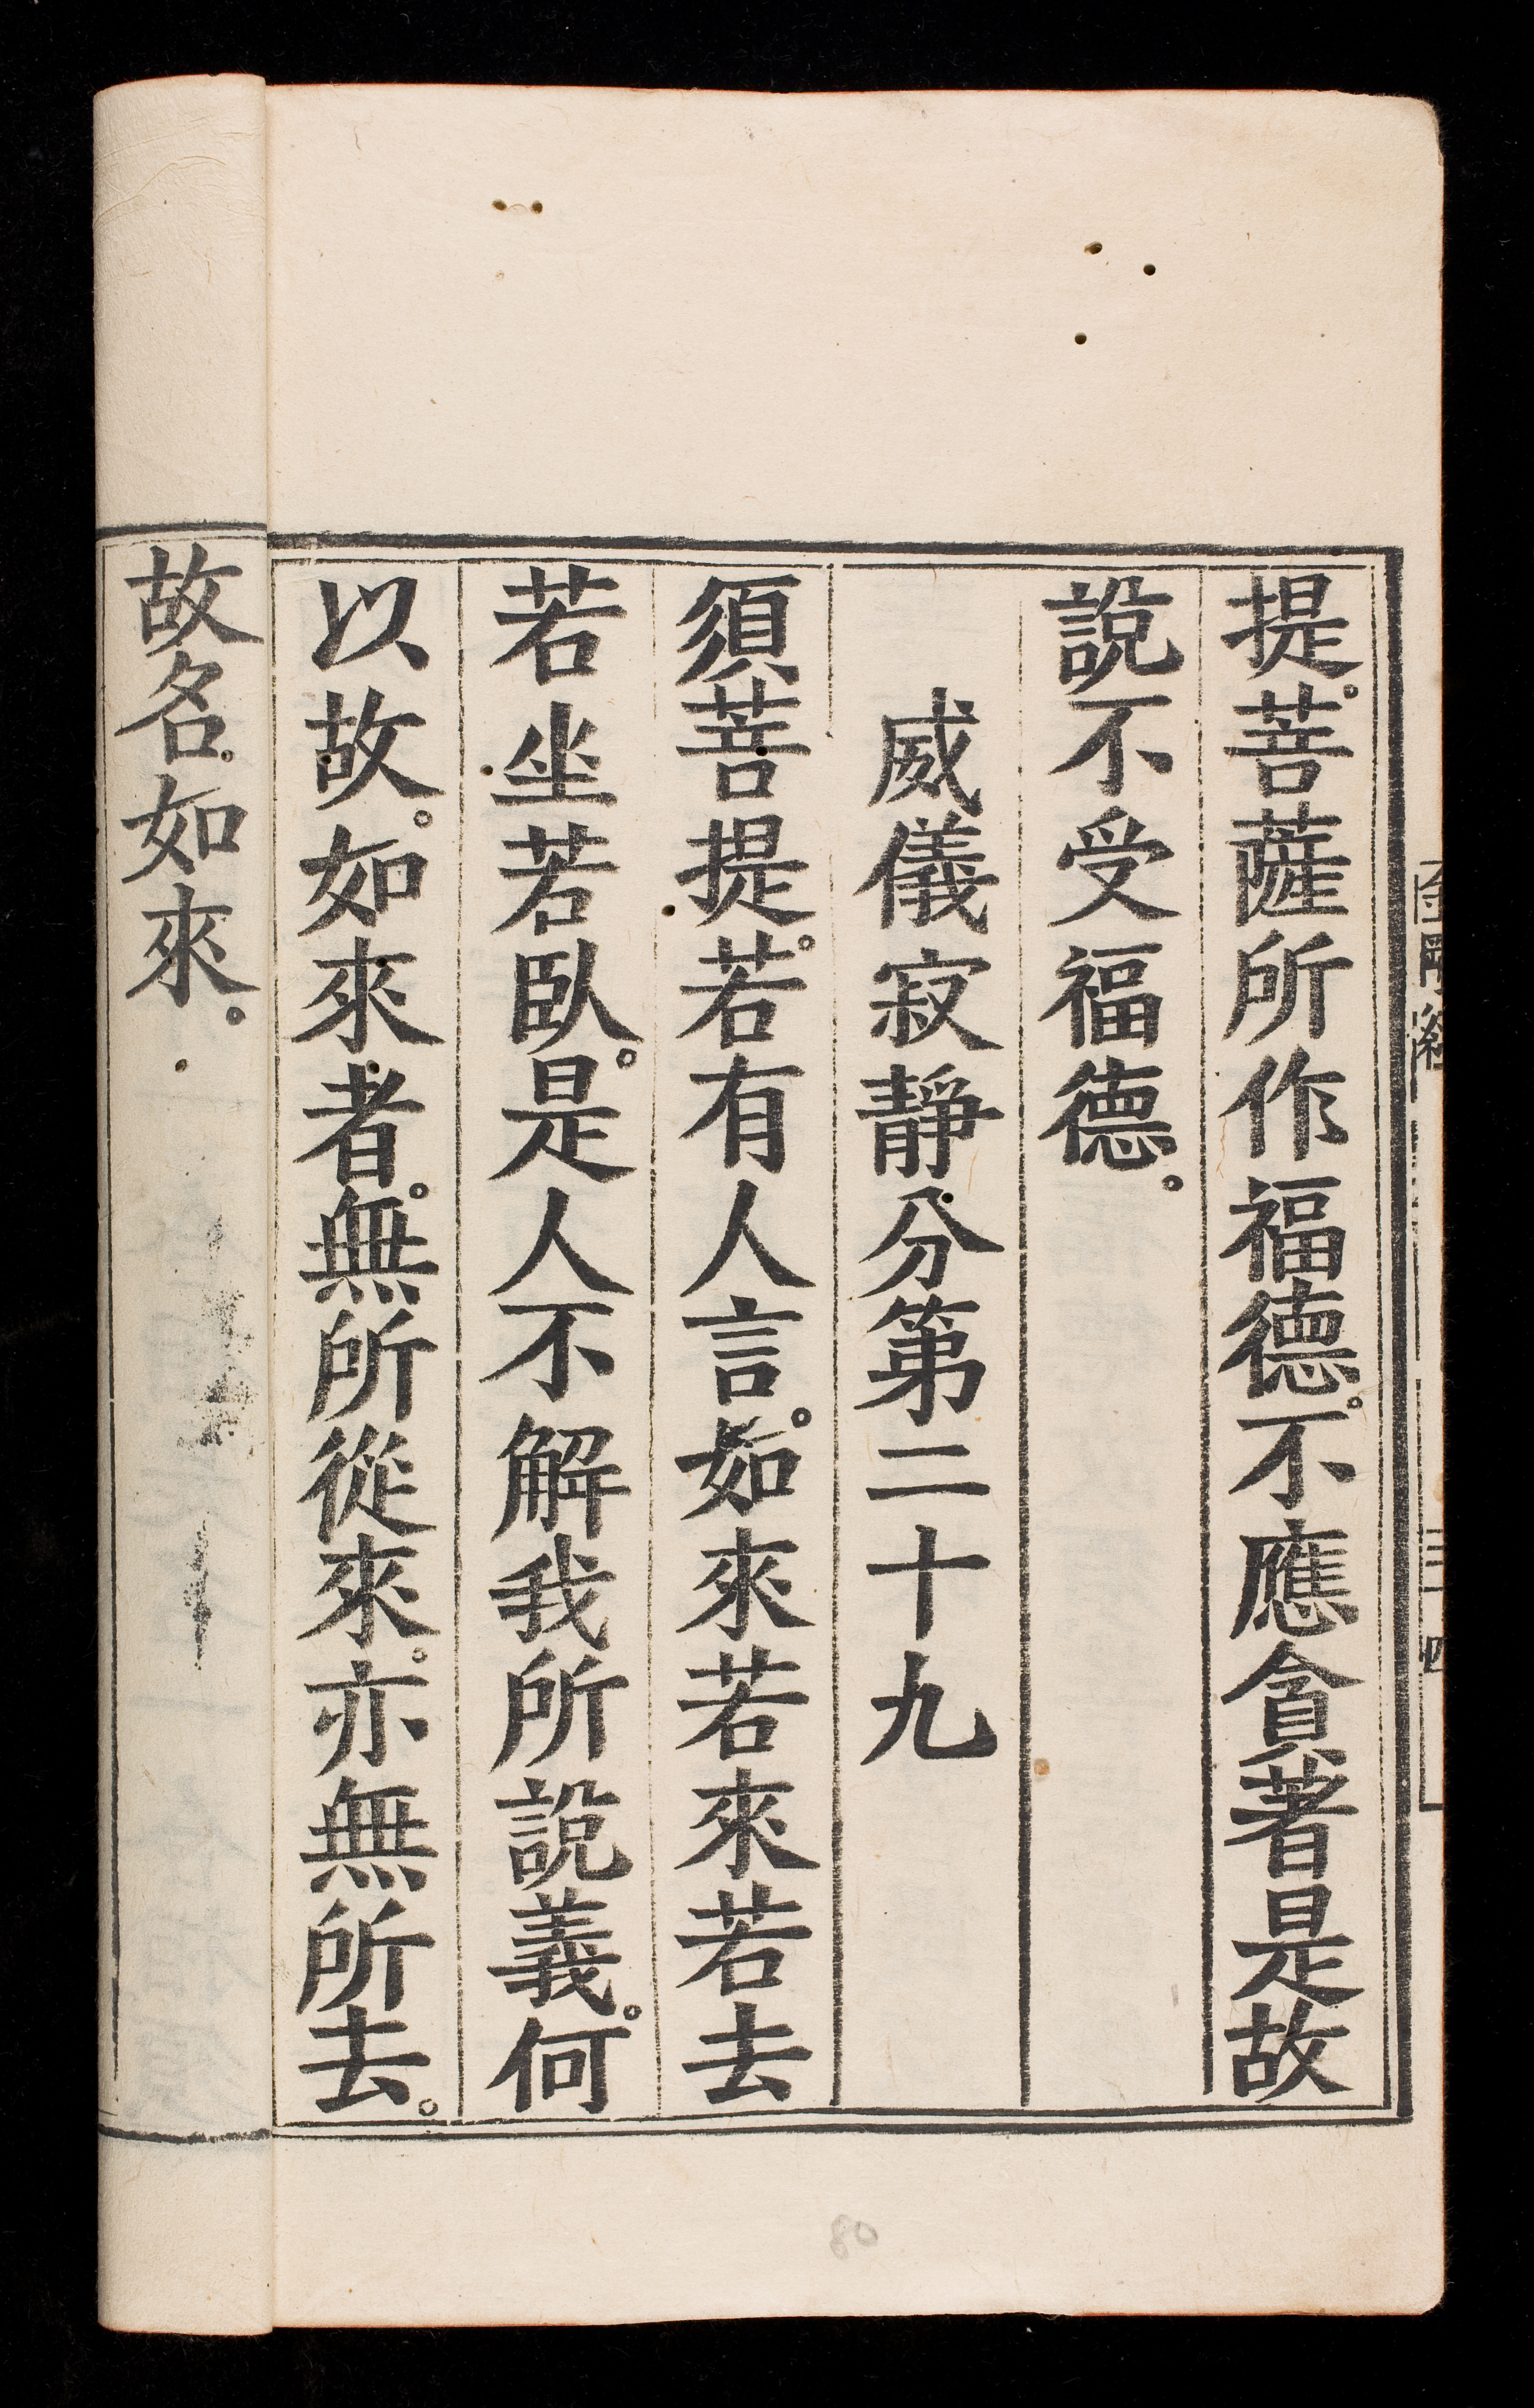 提。菩薩所作福德。不應貪著是故
說不受福德。
威儀寂靜分第二十九
須菩提。若有人言。如來若來若去
若坐若臥。是人不解我所說義。何
以故。如來者。無所從來。亦無所去。
故名如來。
金剛經
三十四
80